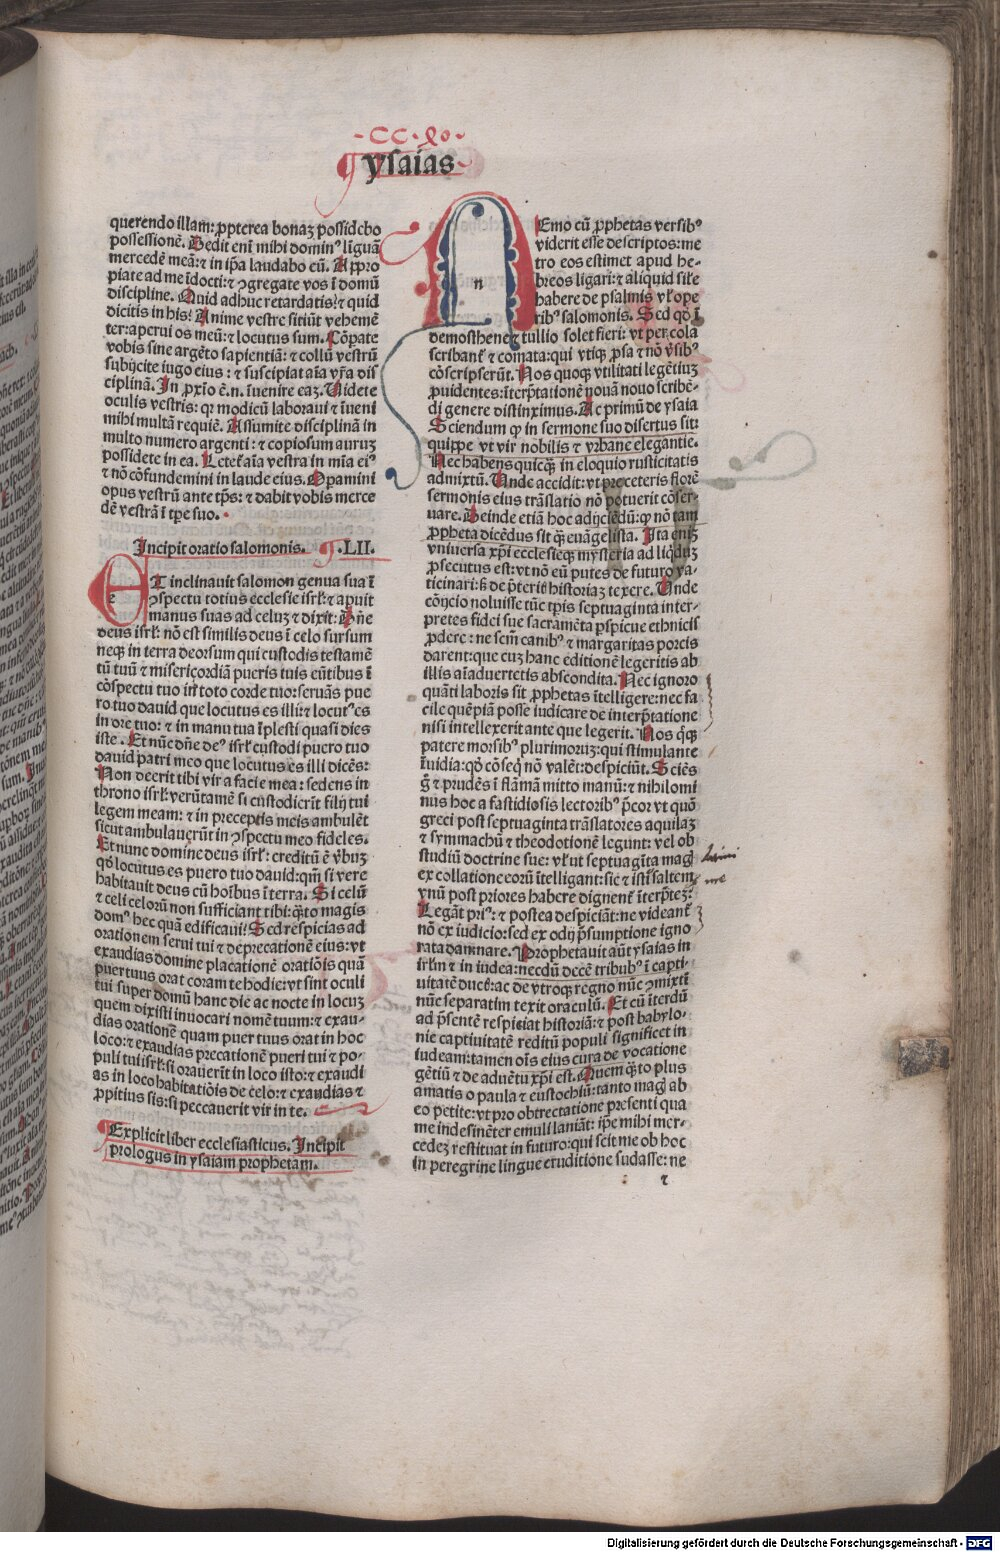 ysaias
querendo illam: ꝓpterea bonaꝫ possidebo
possessionē. Dedit eni mihi dominꝰ līguā
mercedē meā: ⁊ in ip̄a laudabo eū. Appro
piate ad me īdocti: ⁊ ꝯgregate vos ī domū
discipline. Quid adhuc retardatis? ⁊ quid
dicitis in his? Anime vestre sitiūt vehemē
ter: aperui os meū: ⁊ locutus sum. Cōpate
vobis sine argēto sapientiā: ⁊ collū vestrū
subijcite iugo eius: ⁊ suscipiat aīa vr̄a dis
ciplinā. In ꝓxīo ē.n. īuenire eaꝫ. Uidete
oculis vestris: qꝛ modicū laboraui ⁊ īueni
mihi multā requiē. Assumite disciplinā in
multo numero argenti: ⁊ copiosum auruꝫ
possidete in ea. Letet̄ aīa vestra in mīa eiꝰ
⁊ nō cōfundemini in laude eius. Opamini
opus vestrū ante tp̄s: ⁊ dabit vobis merce
dē vestrā ī tp̄e suo.
Incipit oratio salomonis. .LII.
ET inclinauit salomon genua sua ī
ꝯspectu totius ecclesie isrl̄: ⁊ apuit
manus suas ad celuꝫ ⁊ dixit: Dn̄e
deus isrl̄: nō est similis deus ī celo sursum
neqꝫ in terra deorsum qui custodis testamē
tū tuū ⁊ misericordiā pueris tuis eūtibus ī
cōspectu tuo in toto corde tuo: seruās pue
ro tuo dauid que locutus es illi: ⁊ locutꝰ es
in ore tuo: ⁊ in manu tua īplesti quasi dies
iste. Et nūc dn̄e deꝰ isrl̄ custodi puero tuo
dauid patri meo que locutus es illi dicēs:
Non deerit tibi vir a facie mea: sedens in
throno isrl̄: verūtamē si custodierīt filij tui
legem meam: ⁊ in preceptis meis ambulēt
sicut ambulauerūt in ꝯspectu meo fideles.
Et nunc domine deus isrl̄: creditū ē v̄buꝫ
qd̄ locutus es puero tuo dauid: qm̄ si vere
habitauit deus cū hoībus ī terra. Si celū
⁊ celi celorū non sufficiant tibi: q̄to magis
domꝰ hec quā edificaui? Sed respicias ad
orationem serui tui ⁊ deprecationē eius: vt
exaudias domine placationē oratiōis quā
puer tuus orat coram te hodie: vt sint oculi
tui super domū hanc die ac nocte in locuꝫ
quem dixisti inuocari nomē tuum: ⁊ exau-
dias orationē quam puer tuus orat in hoc
loco: ⁊ exaudias precationē pueri tui ⁊ po-
puli tui isrl̄: si orauerit in loco isto: ⁊ exaudi
as in loco habitatiōis de celo: ⁊ exaudias ⁊
ꝓpitius sis: si peccauerit vir in te.
Explicit liber ecclesiasticus. Incipit
prologus in ysaiam prophetam.
n
Emo cū ꝓphetas versibꝰ
viderit esse descriptos: me
tro eos estimet apud he-
breos ligari: ⁊ aliquid sil̄e
habere de psalmis vl̓ ope
ribꝰ salomonis. Sed qd̓ ī
demosthene ⁊ tullio solet fieri: vt per cola
scribant̄ ⁊ comata: qui vtiqꝫ ꝓsa ⁊ nō v̄sibꝰ
cōscripserūt. Nos quoqꝫ vtilitati legētiuꝫ
ꝓuidentes: īterp̄tationē nouā nouo scribē-
di genere distinximus. Ac primū de ysaia
Sciendum ꝙ in sermone suo disertus sit:
quippe vt vir nobilis ⁊ vrbane elegantie.
Nec habens quicqꝫ in eloquio rusticitatis
admixtū. Unde accidit: vt pre ceteris florē
sermonis eius trāslatio nō potuerit cōser-
uare. Deinde etiā hoc adijciēdū: ꝙ nō tam
ꝓpheta dicēdus sit qꝫ euāgelista. Ita eniꝫ
vniuersa xp̄i ecclesieqꝫ mysteria ad liqduꝫ
ꝓsecutus est: vt nō eū putes de futuro va-
ticinari: sꝫ de p̄teris historiaꝫ texere. Unde
cōijcio noluisse tūc tp̄is septuaginta inter-
pretes fidei sue sacramēta ꝑspicue ethnicis
ꝓdere: ne scm̄ canibꝰ ⁊ margaritas porcis
darent: que cuꝫ hanc editionē legeritis ab
illis aīaduertetis abscondita. Nec ignoro
quāti laboris sit ꝓphetas ītelligere: nec fa
cile quēpiā posse iudicare de interp̄tatione
nisi intellexerit ante que legerit. Nos q̄qꝫ
patere morsibꝰ plurimoruꝫ: qui stimulante
īuidia: qd̓ cōseq̄ nō valēt: despiciūt. Sciēs
g̊ ⁊ prudēs ī flāmā mitto manū: ⁊ nihilomi
nus hoc a fastidiosis lectoribꝰ p̄cor vt quō
greci post septuaginta trāslatores aquilaꝫ
⁊ symmachū ⁊ theodotionē legunt: vel ob
studiū doctrine sue: vl̓ ut septuagīta magꝭ
ex collatione eorū ītelligant: sic ⁊ isti saltem
vnū post priores habere dignent̄ īterp̄teꝫ:
Legāt priꝰ: ⁊ postea despiciāt: ne videant̄
nō ex iudicio: sed ex odij p̄sumptione igno
rata damnare. Prophetauit aūt ysaias in
irlm̄ ⁊ in iudea: necdū decē tribubꝰ ī capti-
uitatē ductꝭ: ac de vtroqꝫ regno nūc ꝯmixtī
nūc separatim texit oraculū. Et cū īterdū
ad p̄sentē respiciat historiā: ⁊ post babylo-
nie captiuitatē reditū populi significet in
iudeam: tamen oīs eius cura de vocatione
gētiū ⁊ de aduētu xp̄i est. Quem q̄to plus
amatis o paula ⁊ eustochiū: tanto magꝭ ab
eo petite: vt pro obtrectatione presenti qua
me indesinēter emuli laniāt: ip̄e mihi mer-
cedeꝫ restituat in futuro: qui scit me ob hoc
in peregrine lingue eruditione sudasse: ne
⁊
Digitalisierung gefördert durch die Deutsche Forschungsgemeinschaft - DFG